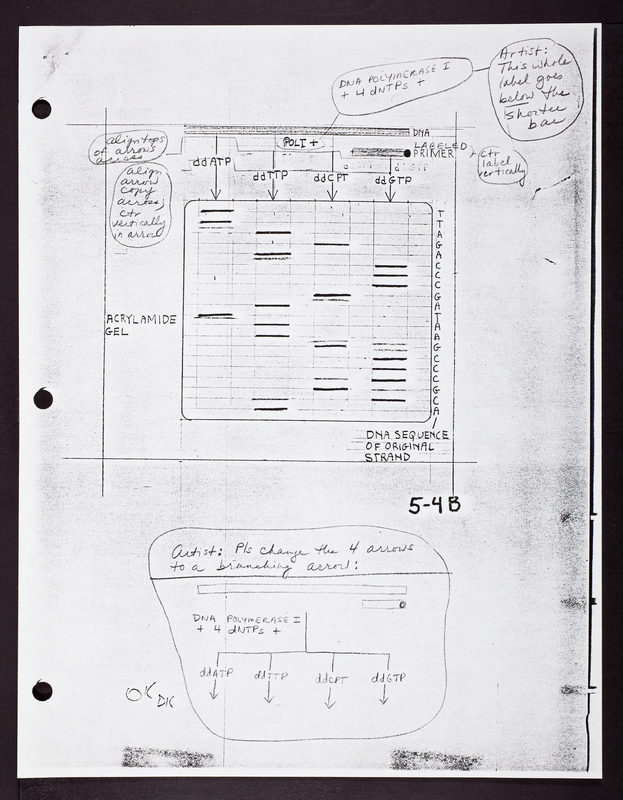 Artist:
This whole
label goes
below the
shorter
bar
DNA POLYMERASE I
+ 4 dNTPs +
DNA
POLI +
LABELED
PRIMER
ctr
label
vertically
align tops
of arrows
across
ddATP
ddTTP
ddCPT
ddGTP
align
arrow
copy
across;
ctr
vertically
in arrow
T
T
A
G
A
C
C
C
G
A
T
A
A
G
C
C
C
G
C
A
ACRYLAMIDE
GEL
DNA SEQUENCE
OF ORIGINAL
STRAND
5-4B
Artist: Pls change the 4 arrows
to a branching arrow:
DNA POLYMERASE I
+ 4 dNTPs +
ddATP
ddTTP
ddCPT
ddGTP
OK